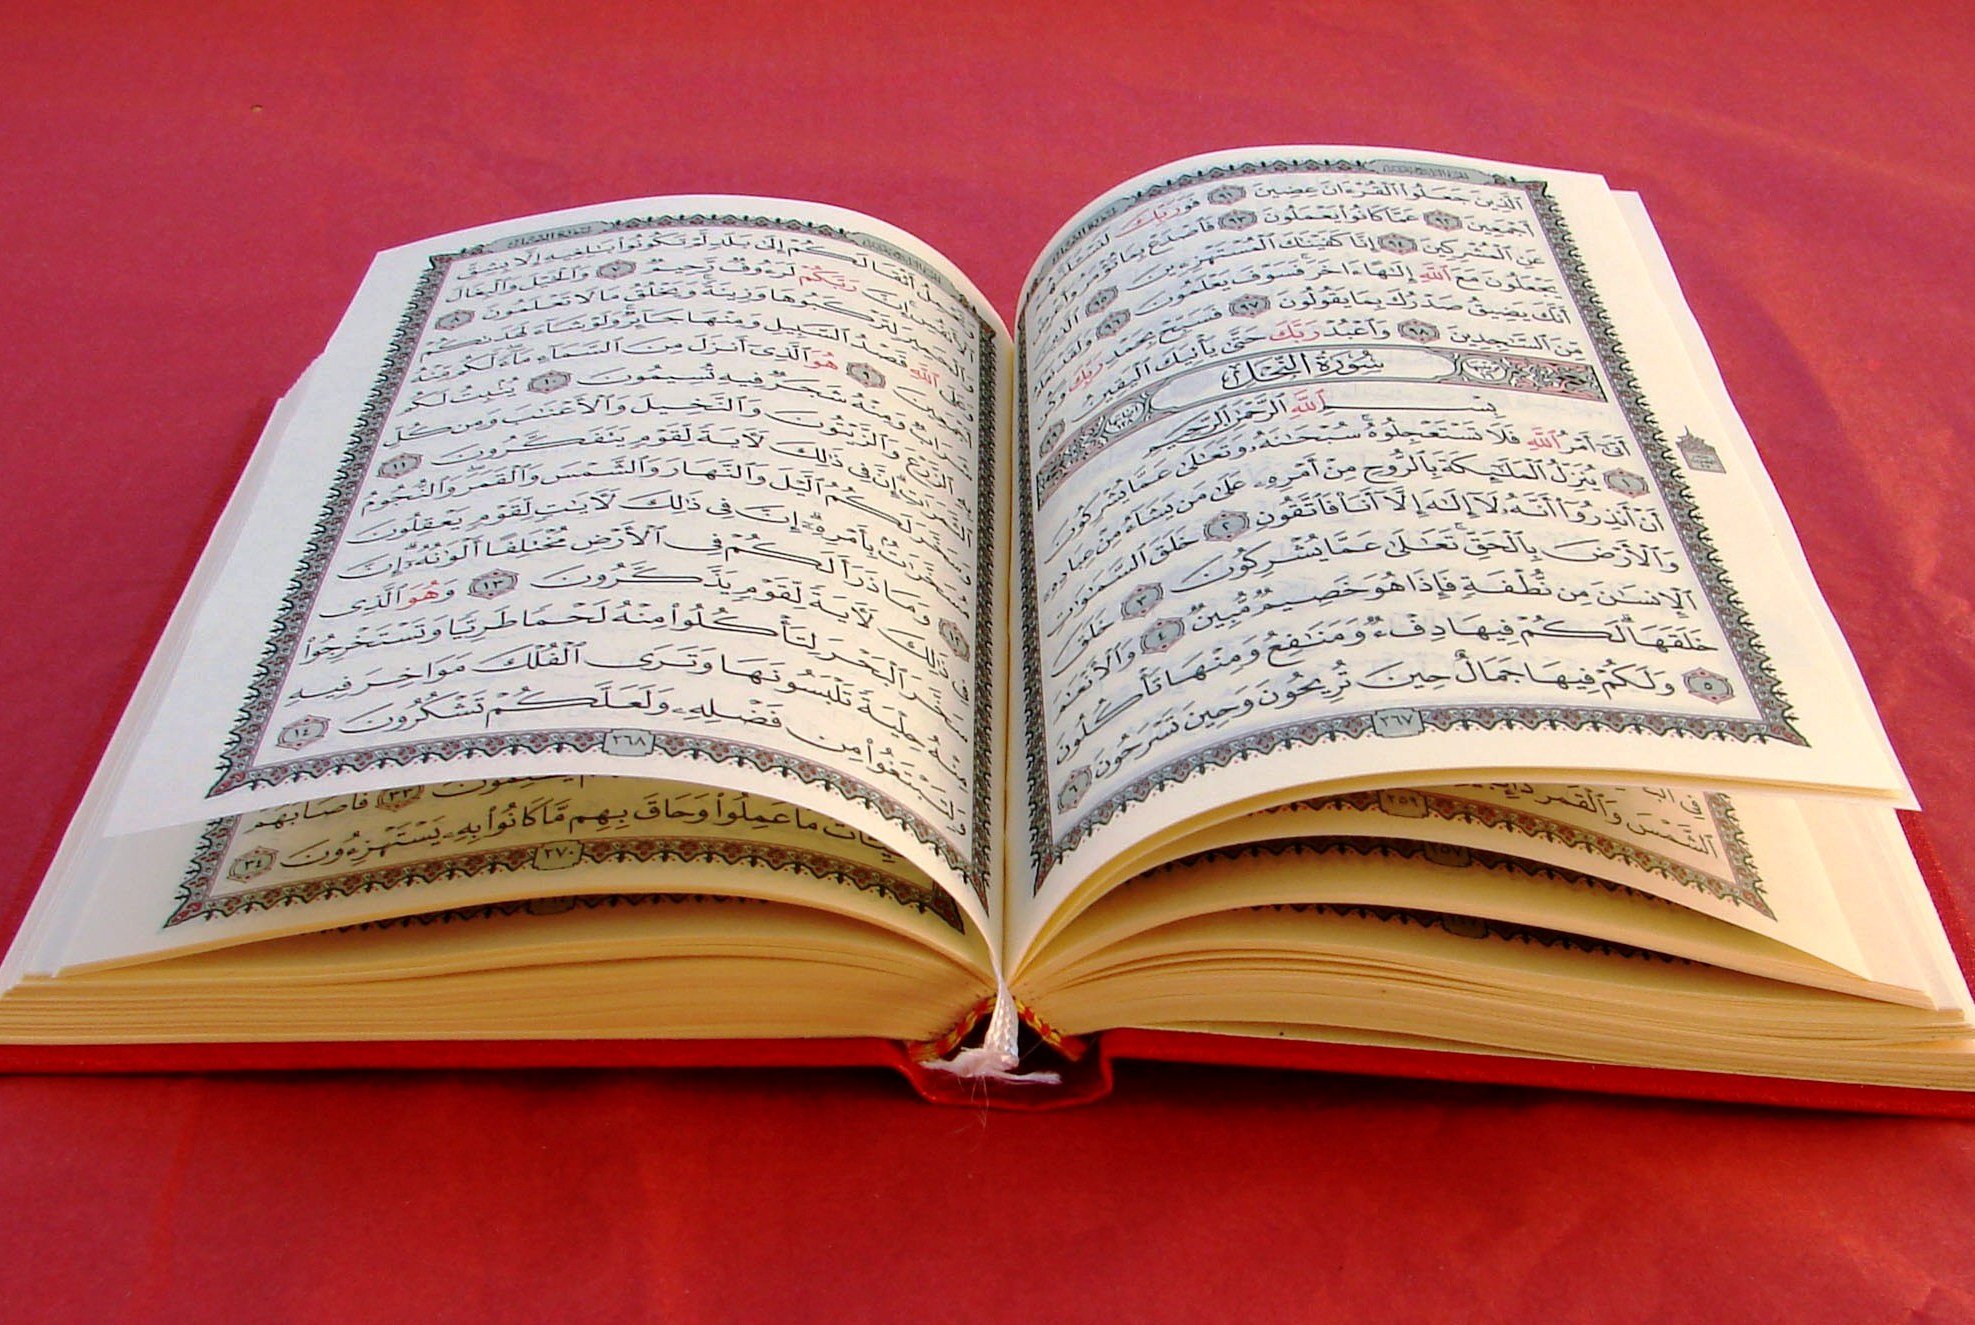 ٱلَّذِينَ جَعَلُوا۟ ٱلْقُرْءَانَ عِضِينَ ٩١ فَوَرَبِّكَ لَنَسْـَٔلَنَّهُمْ
أَجْمَعِينَ ٩٢ عَمَّا كَانُوا۟ يَعْمَلُونَ ٩٣ فَٱصْدَعْ بِمَا تُؤْمَرُ وَأَعْرِضْ
عَنِ ٱلْمُشْرِكِينَ ٩٤ إِنَّا كَفَيْنَـٰكَ ٱلْمُسْتَهْزِءِينَ ٩٥ ٱلَّذِينَ
يَجْعَلُونَ مَعَ ٱللَّهِ إِلَـٰهًا ءَاخَرَ فَسَوْفَ يَعْلَمُونَ ٩٦ وَلَقَدْ نَعْلَمُ
أَنَّكَ يَضِيقُ صَدْرُكَ بِمَا يَقُولُونَ ٩٧ فَسَبِّحْ بِحَمْدِ رَبِّكَ وَكُن
مِّنَ ٱلسَّـٰجِدِينَ ٩٨ وَٱعْبُدْ رَبَّكَ حَتَّىٰ يَأْتِيَكَ ٱلْيَقِينُ ٩٩
سُورَةُ النَّحْلِ
بِسْمِ ٱللَّهِ ٱلرَّحْمَـٰنِ ٱلرَّحِيمِ
أَتَىٰٓ أَمْرُ ٱللَّهِ فَلَا تَسْتَعْجِلُوهُ سُبْحَـٰنَهُۥ وَتَعَـٰلَىٰ عَمَّا يُشْرِكُونَ
١ يُنَزِّلُ ٱلْمَلَـٰٓئِكَةَ بِٱلرُّوحِ مِنْ أَمْرِهِۦ عَلَىٰ مَن يَشَآءُ مِنْ عِبَادِهِۦٓ
أَنْ أَنذِرُوٓا۟ أَنَّهُۥ لَآ إِلَـٰهَ إِلَّآ أَنَا۠ فَٱتَّقُونِ ٢ خَلَقَ ٱلسَّمَـٰوَٰتِ
وَٱلْأَرْضَ بِٱلْحَقِّ تَعَـٰلَىٰ عَمَّا يُشْرِكُونَ ٣ خَلَقَ
ٱلْإِنسَـٰنَ مِن نُّطْفَةٍ فَإِذَا هُوَ خَصِيمٌ مُّبِينٌ ٤ وَٱلْأَنْعَـٰمَ
خَلَقَهَا لَكُمْ فِيهَا دِفْءٌ وَمَنَـٰفِعُ وَمِنْهَا تَأْكُلُونَ
٥ وَلَكُمْ فِيهَا جَمَالٌ حِينَ تُرِيحُونَ وَحِينَ تَسْرَحُونَ ٦
٢٦٧
وَتَحْمِلُ أَثْقَالَكُمْ إِلَىٰ بَلَدٍ لَّمْ تَكُونُوا۟ بَـٰلِغِيهِ إِلَّا بِشِقِّ
ٱلْأَنفُسِ إِنَّ رَبَّكُمْ لَرَءُوفٌ رَّحِيمٌ ٧ وَٱلْخَيْلَ وَٱلْبِغَالَ
وَٱلْحَمِيرَ لِتَرْكَبُوهَا وَزِينَةً وَيَخْلُقُ مَا لَا تَعْلَمُونَ ٨
وَعَلَى ٱللَّهِ قَصْدُ ٱلسَّبِيلِ وَمِنْهَا جَآئِرٌ وَلَوْ شَآءَ لَهَدَىٰكُمْ
أَجْمَعِينَ ٩ هُوَ ٱلَّذِىٓ أَنزَلَ مِنَ ٱلسَّمَآءِ مَآءً لَّكُم مِّنْهُ
شَرَابٌ وَمِنْهُ شَجَرٌ فِيهِ تُسِيمُونَ ١٠ يُنۢبِتُ لَكُم
بِهِ ٱلزَّرْعَ وَٱلزَّيْتُونَ وَٱلنَّخِيلَ وَٱلْأَعْنَـٰبَ وَمِن كُلِّ
ٱلثَّمَرَٰتِ إِنَّ فِى ذَٰلِكَ لَـَٔايَةً لِّقَوْمٍ يَتَفَكَّرُونَ ١١
وَسَخَّرَ لَكُمُ ٱلَّيْلَ وَٱلنَّهَارَ وَٱلشَّمْسَ وَٱلْقَمَرَ وَٱلنُّجُومُ
مُسَخَّرَٰتٌۢ بِأَمْرِهِۦٓ إِنَّ فِى ذَٰلِكَ لَـَٔايَـٰتٍ لِّقَوْمٍ يَعْقِلُونَ
١٢ وَمَا ذَرَأَ لَكُمْ فِى ٱلْأَرْضِ مُخْتَلِفًا أَلْوَٰنُهُۥٓ إِنَّ
فِى ذَٰلِكَ لَـَٔايَةً لِّقَوْمٍ يَذَّكَّرُونَ ١٣ وَهُوَ ٱلَّذِى
سَخَّرَ ٱلْبَحْرَ لِتَأْكُلُوا۟ مِنْهُ لَحْمًا طَرِيًّا وَتَسْتَخْرِجُوا۟
مِنْهُ حِلْيَةً تَلْبَسُونَهَا وَتَرَى ٱلْفُلْكَ مَوَاخِرَ فِيهِ
وَلِتَبْتَغُوا۟ مِن فَضْلِهِۦ وَلَعَلَّكُمْ تَشْكُرُونَ ١٤
٢٦٨
٣٣ فَأَصَابَهُمْ
مَا عَمِلُوا۟ وَحَاقَ بِهِم مَّا كَانُوا۟ بِهِۦ يَسْتَهْزِءُونَ ٣٤
٢٧٠
ٱلشَّمْسَ وَٱلْقَمَرَ